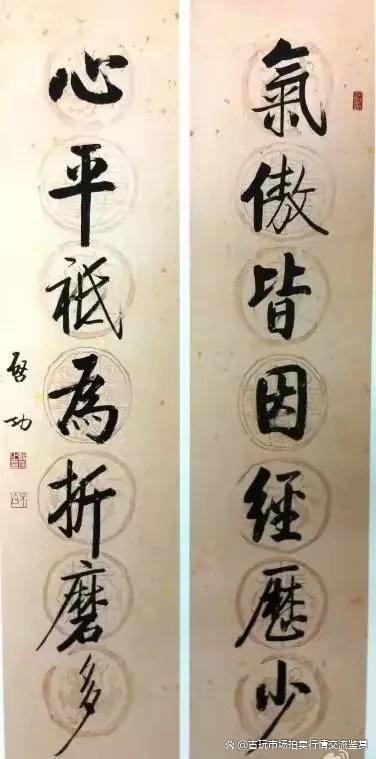 氣傲皆因經歷少
心平祗為折磨多
啓功
@古玩市场拍卖行情交流鉴赏